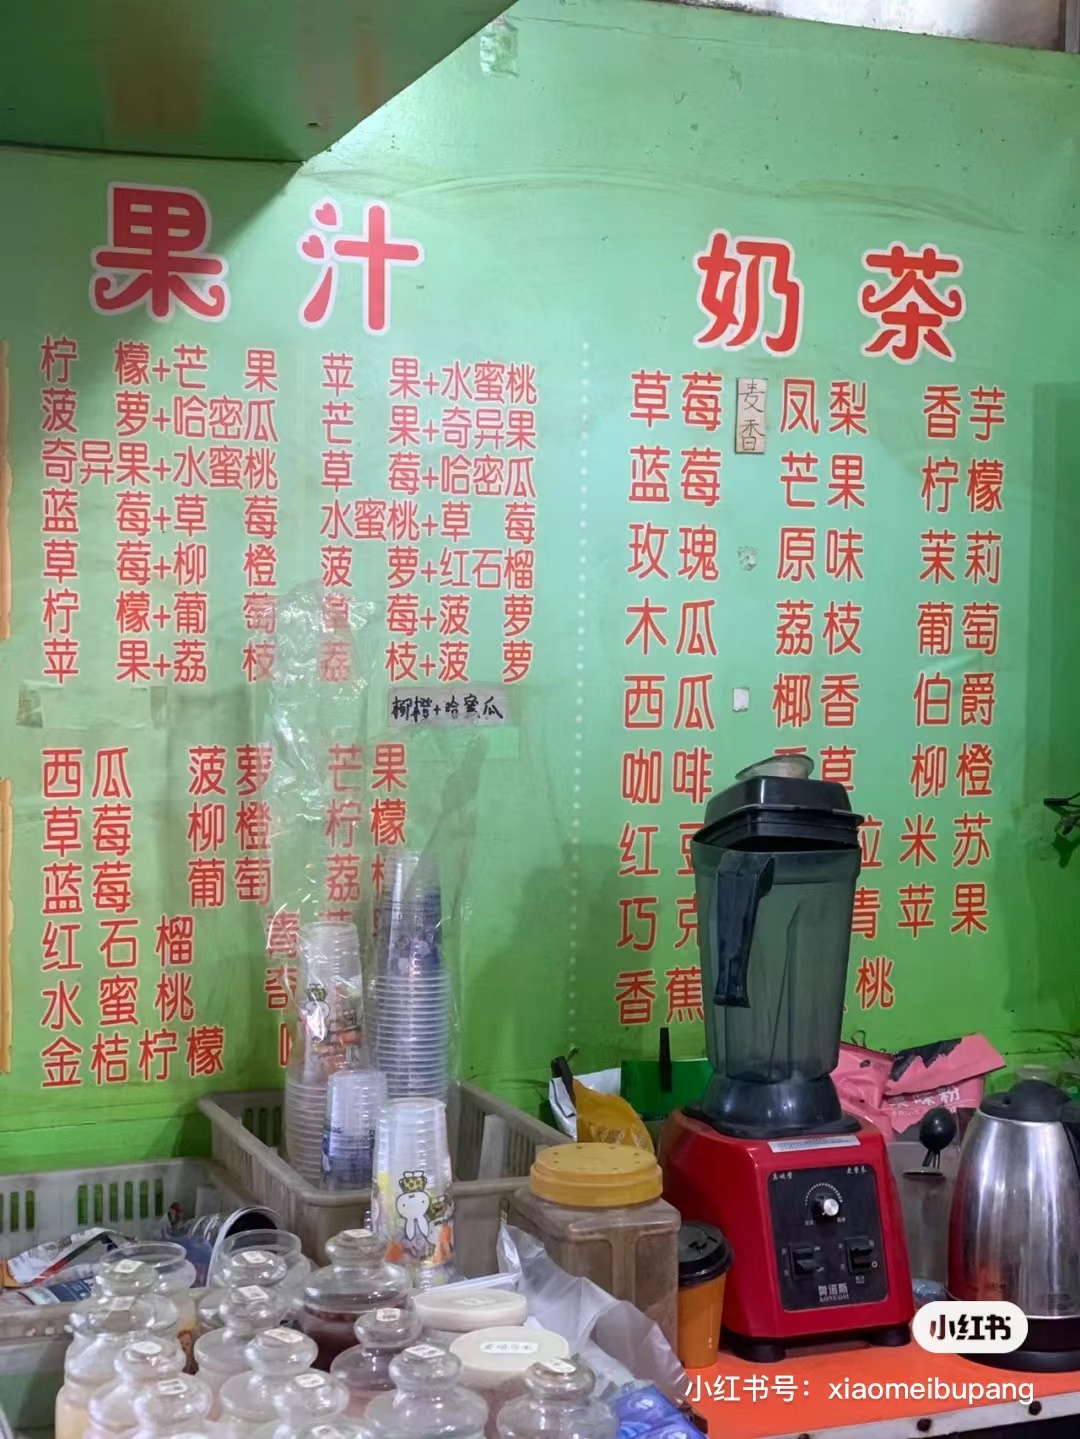 果汁
柠檬+芒果 苹果+水蜜桃
菠萝+哈密瓜 芒果+奇异果
奇异果+水蜜桃 草莓+哈密瓜
蓝莓+草莓 水蜜桃+草莓
草莓+柳橙 菠萝+红石榴
柠檬+葡萄 莓+菠萝
苹果+荔枝 荔枝+菠萝
柳橙+哈蜜瓜
西瓜 菠萝 芒果
草莓 柳橙 柠檬
蓝莓 葡萄 荔
红石榴 青
水蜜桃 奇
金桔柠檬
奶茶
草莓 麦香 凤梨 香芋
蓝莓 芒果 柠檬
玫瑰 原味 茉莉
木瓜 荔枝 葡萄
西瓜 椰香 伯爵
咖啡 草 柳橙
红豆 米苏
巧克 青苹果
香蕉 桃
小红书
小红书号：xiaomeibupang